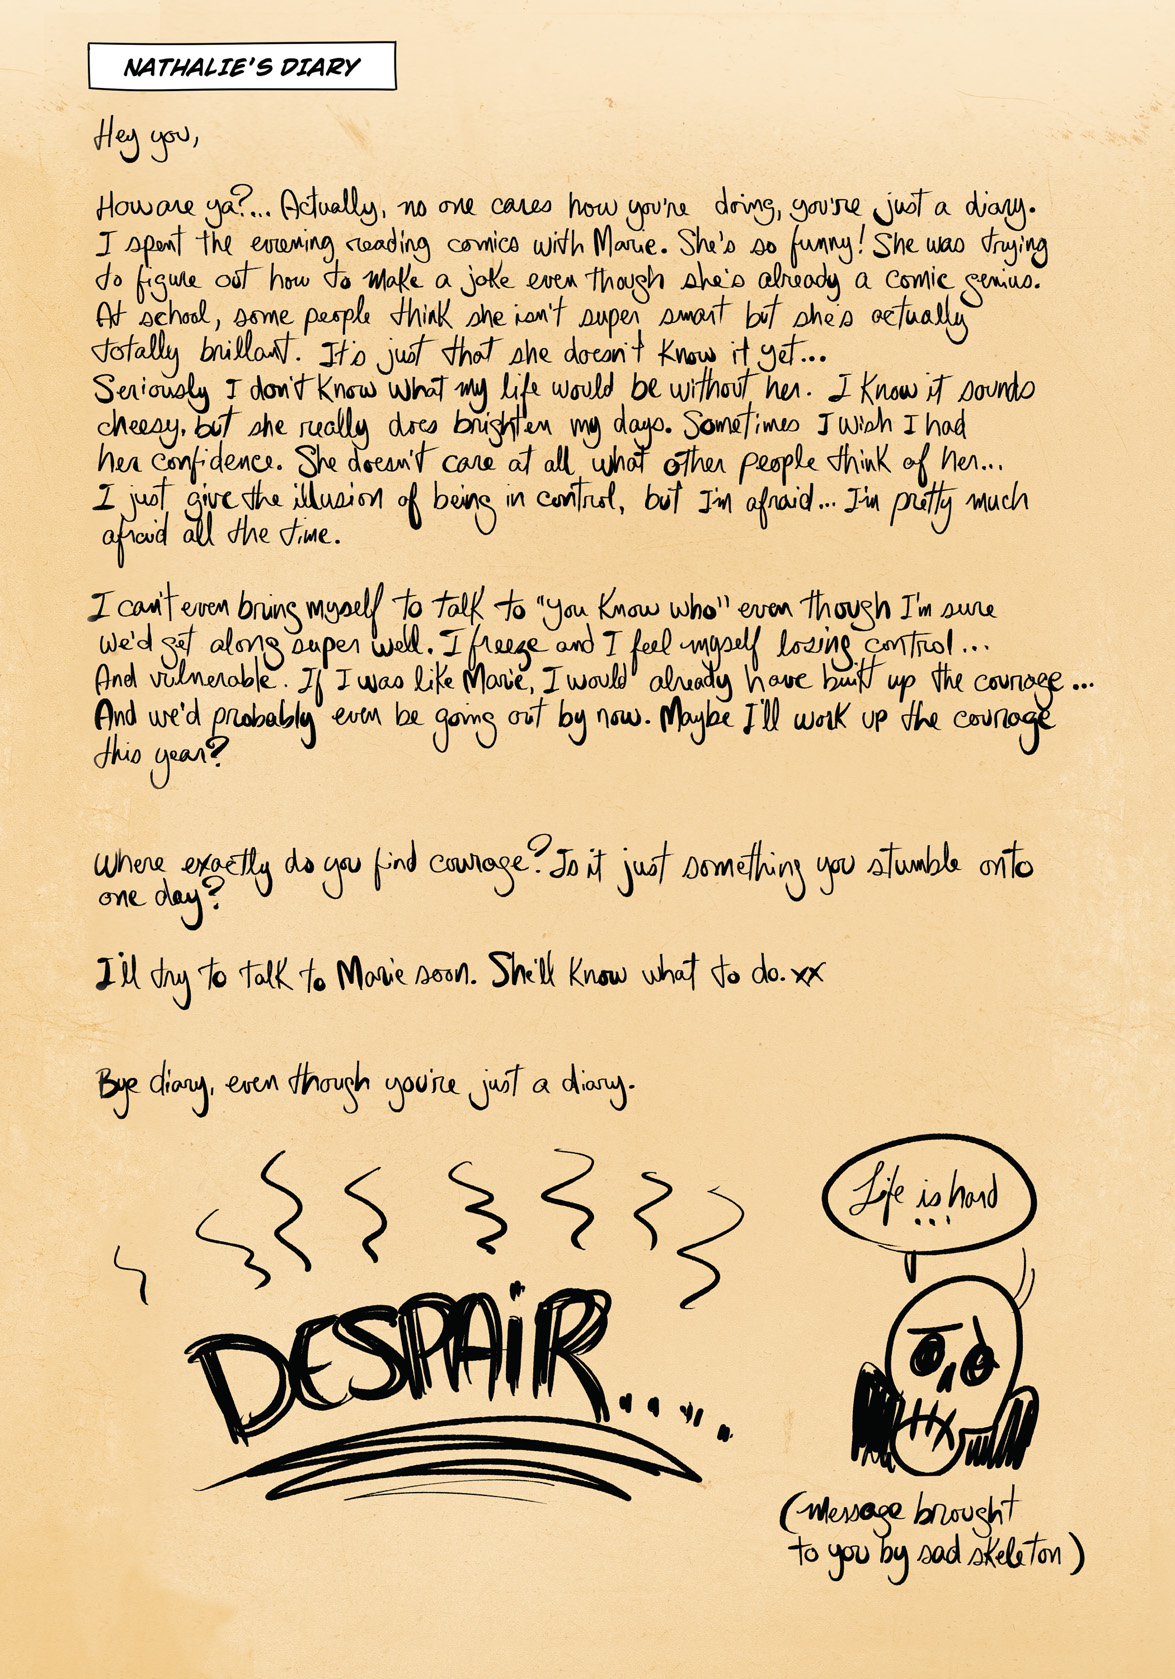 NATHALIE'S DIARY
Hey you,
How are ya?... Actually, no one cares how you're doing, you're just a diary.
I spent the evening reading comics with Marie. She's so funny! She was trying
to figure out how to make a joke even though she's already a comic genius.
At school, some people think she isn't super smart but she's actually
totally brillant. It's just that she doesn't know it yet...
Seriously I don't know what my life would be without her. I know it sounds
cheesy, but she really does brighten my days. Sometimes I wish I had
her confidence. She doesn't care at all what other people think of her...
I just give the illusion of being in control, but I'm afraid... I'm pretty much
afraid all the time.
I can't even bring myself to talk to "you know who" even though I'm sure
we'd get along super well. I freeze and I feel myself losing control...
And vulnerable. If I was like Marie, I would already have built up the courage...
And we'd probably even be going out by now. Maybe I'll work up the courage
this year?
Where exactly do you find courage? Is it just something you stumble onto
one day?
I'll try to talk to Marie soon. She'll know what to do. xx
Bye diary, even though you're just a diary.
Life is hard
...
DESPAiR....
(message brought
to you by sad skeleton)